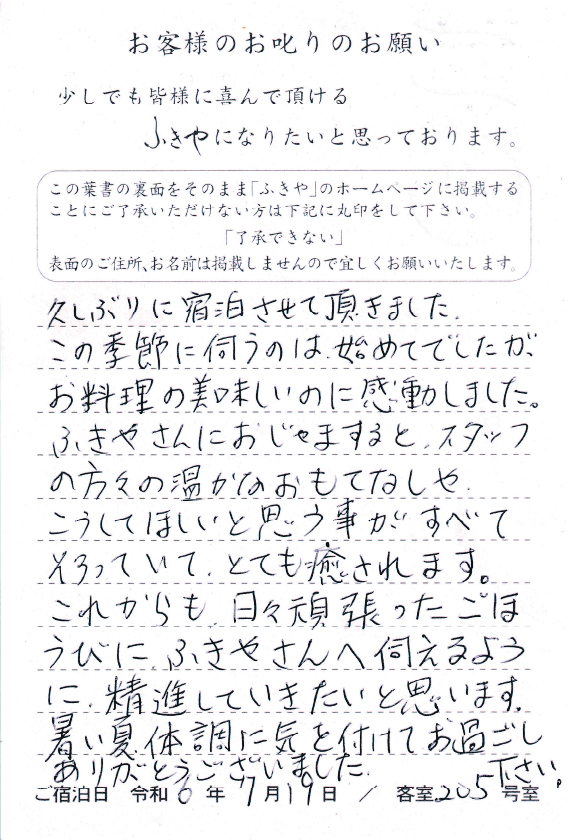 お客様のお叱りのお願い
少しでも皆様に喜んで頂ける
ふきやになりたいと思っております。
この葉書の裏面をそのまま「ふきや」のホームページに掲載する
ことにご了承いただけない方は下記に丸印をして下さい。
「了承できない」
表面のご住所、お名前は掲載しませんので宜しくお願いいたします。
久しぶりに宿泊させて頂きました。
この季節に伺うのは、始めてでしたが、
お料理の美味しいのに感動しました。
ふきやさんにおじゃますると、スタッフ
の方々の温かなおもてなしや、
こうしてほしいと思う事がすべて
そろっていて、とても癒されます。
これからも、日々頑張ったごほ
うびに、ふきやさんへ伺えるよう
に、精進していきたいと思います。
暑い夏、体調に気を付けてお過ごし
下さい。
ありがとうございました。
ご宿泊日 令和6年7月19日 / 客室205号室